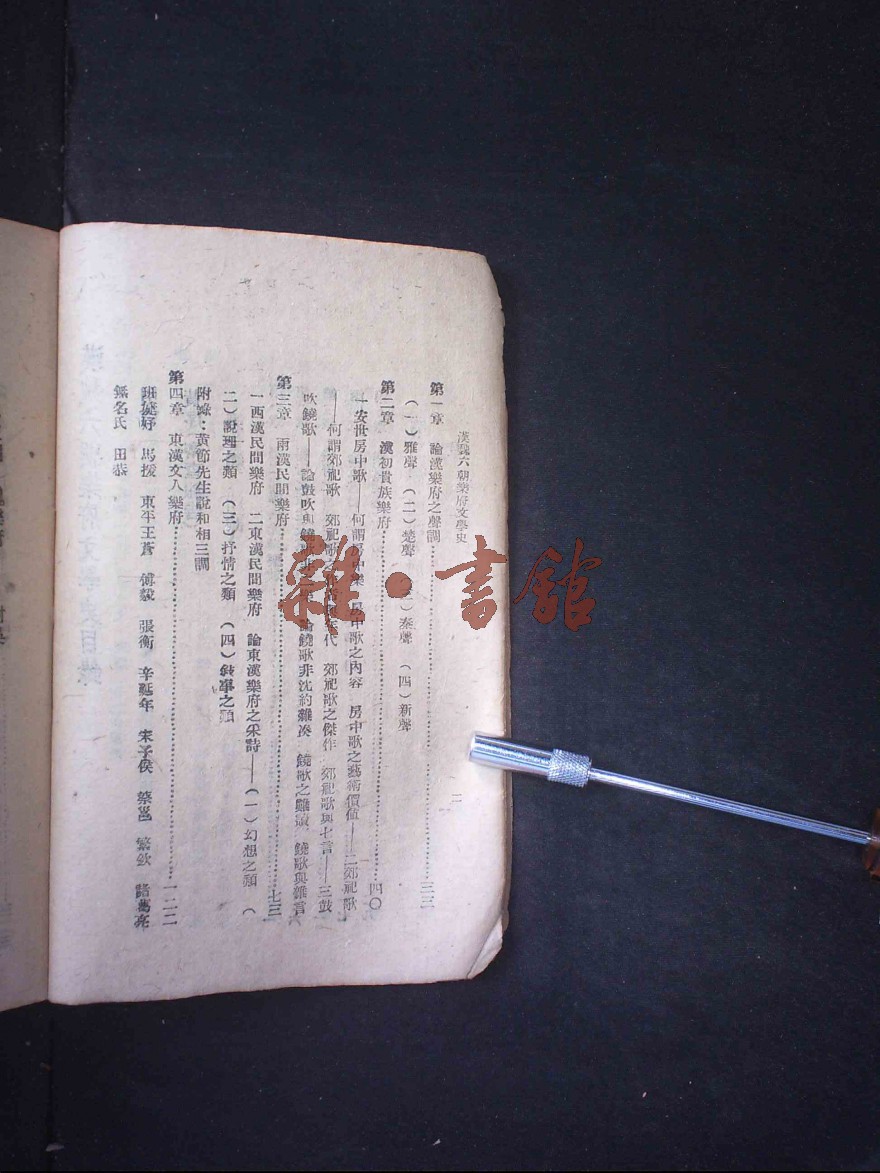 漢魏六朝樂府文學史
二
第一章 論漢樂府之聲調……三三
(一)雅聲 (二)楚聲 (三)秦聲 (四)新聲
第二章 漢初貴族樂府……四〇
一安世房中歌——何謂房中樂 房中歌之內容 房中歌之藝術價值——二郊祀歌
——何謂郊祀歌 郊祀歌之 代 郊祀歌之傑作 郊祀歌與七言——三鼓
吹鐃歌——論鼓吹與鐃歌 論鐃歌非沈約雜湊 鐃歌之難讀 鐃歌與雜言
第三章 兩漢民間樂府……七三
一西漢民間樂府 二東漢民間樂府 論東漢樂府之采詩——(一)幻想之類 (
二)說理之類 (三)抒情之類 (四)敍事之類
附錄:黃節先生說和相三調
第四章 東漢文人樂府……一二二
班婕妤 馬援 東平王蒼 傅毅 張衡 辛延年 宋子侯 蔡邕 繁欽 諸葛亮
無名氏 田恭
雜·書館